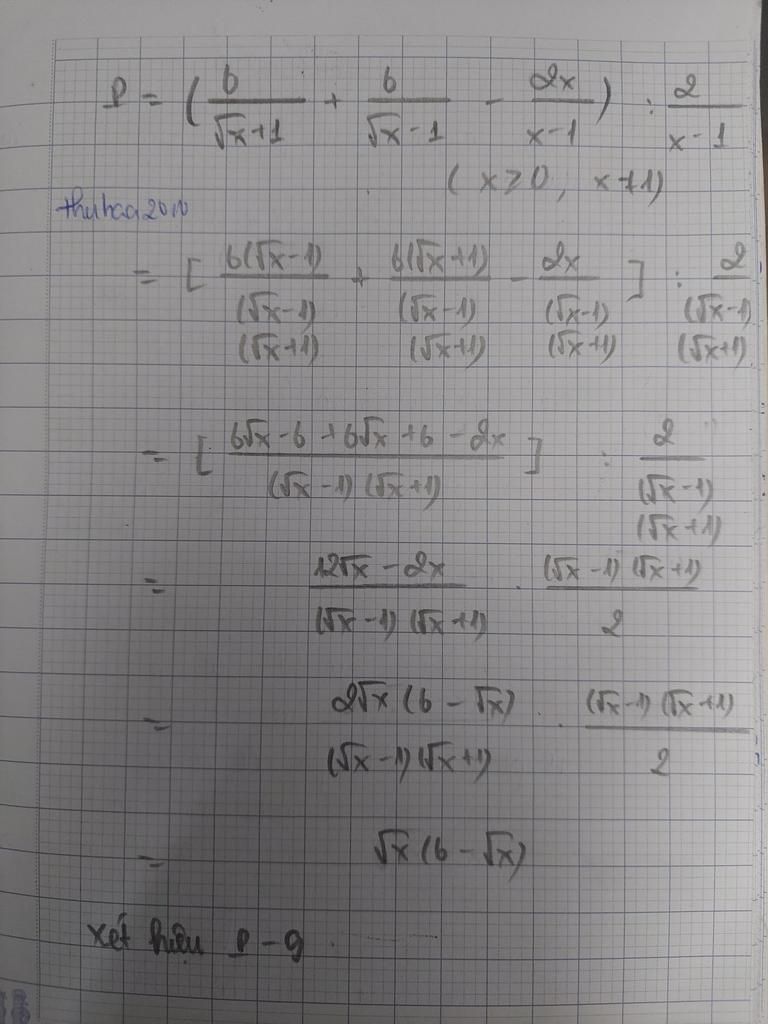 P = ( 6/(√x+1) + 6/(√x-1) - 2x/(x-1) ) : 2/(x-1)
( x ≥ 0, x ≠ 1)
thuhaa2010
= [ 6(√x-1)/((√x-1)(√x+1)) + 6(√x+1)/((√x-1)(√x+1)) - 2x/((√x-1)(√x+1)) ] : 2/((√x-1)(√x+1))
= [ (6√x-6+6√x+6-2x)/((√x-1)(√x+1)) ] : 2/((√x-1)(√x+1))
= (12√x-2x)/((√x-1)(√x+1)) . ((√x-1)(√x+1))/2
= 2√x(6-√x)/((√x-1)(√x+1)) . ((√x-1)(√x+1))/2
= √x(6-√x)
xét hiệu P-9